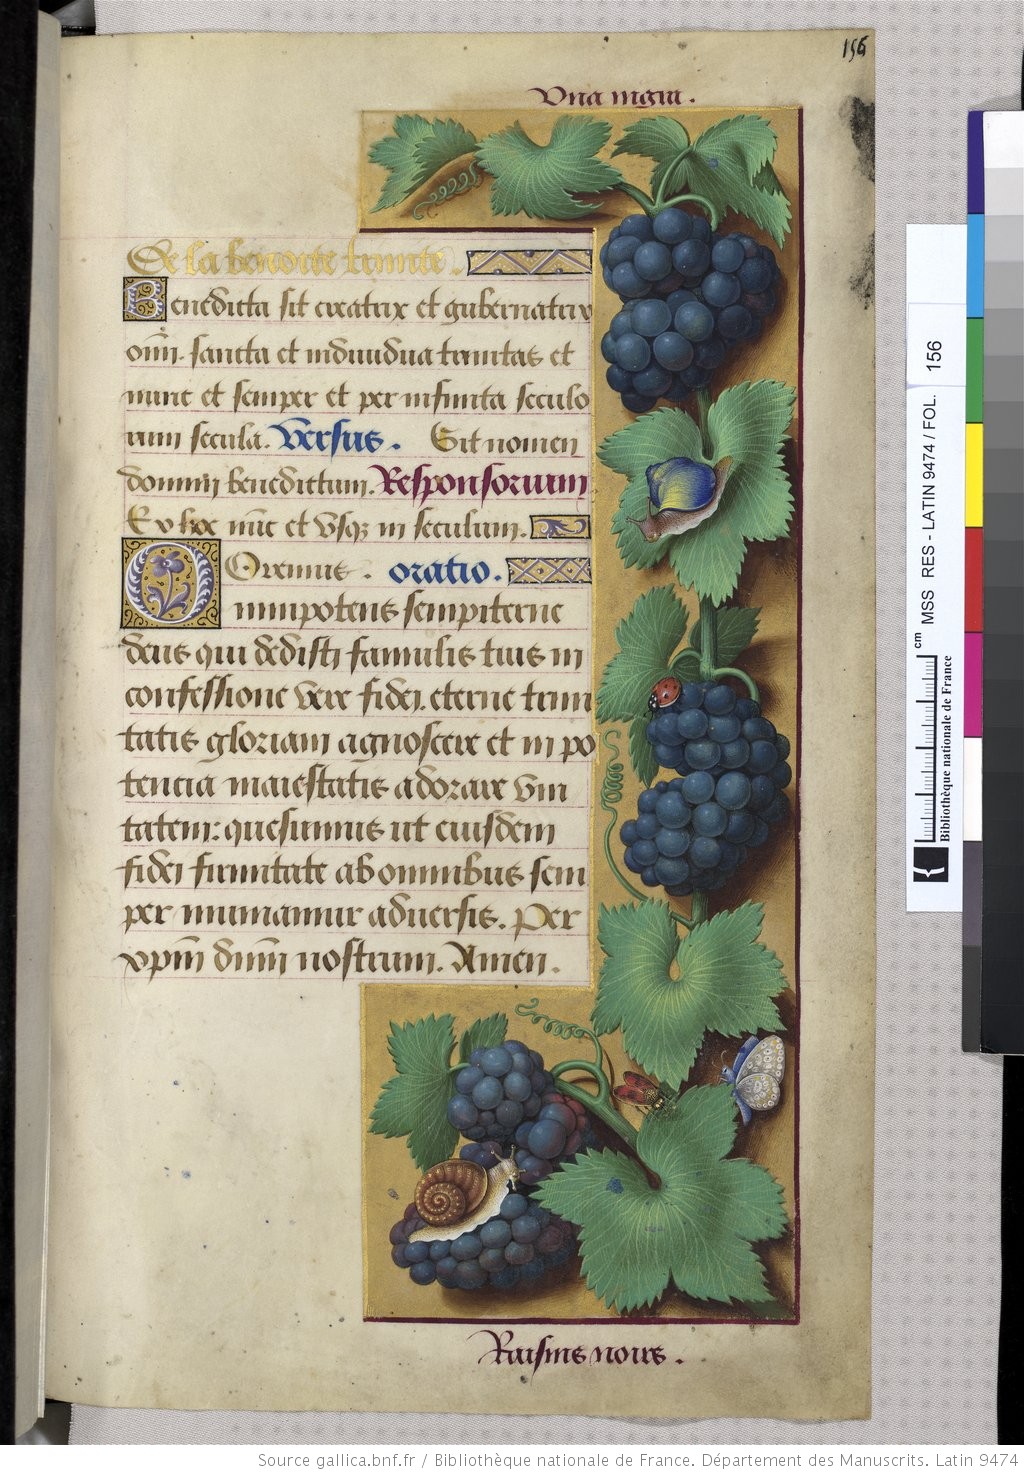 156
Vna nigra.
De la benoite trinite.
Benedicta sit creatrix et gubernatrix
oīm. sancta et indiuidua trinitas et
nunc et semper et per infinita seculo
rum secula. Versus. Sit nomen
domini benedictum. Responsorium
Ex hoc nūc et vsq; in seculum.
Oremus. oratio.
Omnipotens sempiterne
deus qui dedisti famulis tuis in
confessione vere fidei eterne trini
tatis gloriam agnoscere et in po
tencia maiestatis adorare vni
tatem: quesumus ut eiusdem
fidei firmitate ab omnibus sem
per muniamur aduersis. Per
xpm̄ dn̄m nostrum. Amen.
Raisins noirs.
cm MSS RES - LATIN 9474 / FOL. 156
Bibliothèque nationale de France
Source gallica.bnf.fr / Bibliothèque nationale de France. Département des Manuscrits. Latin 9474